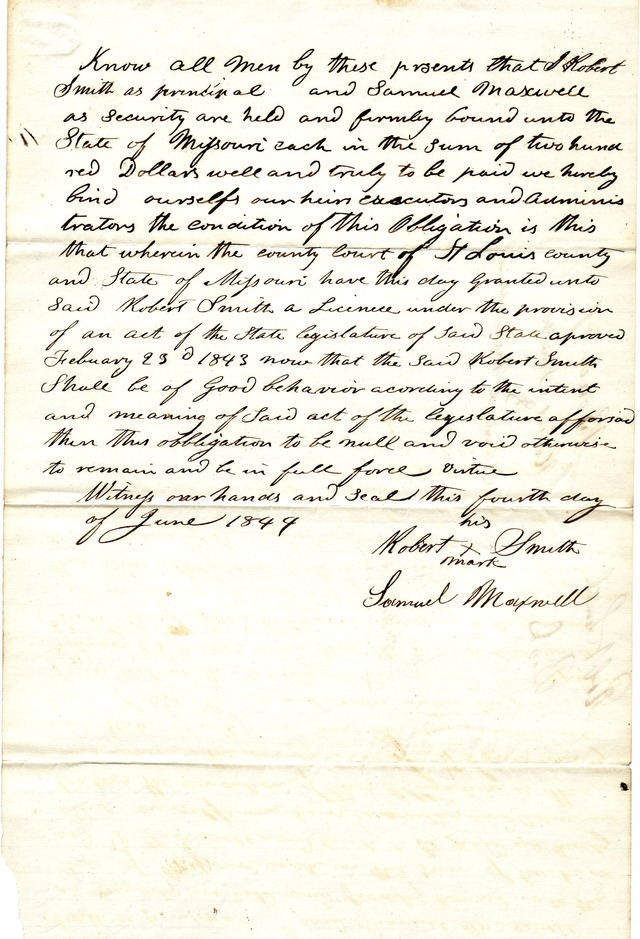 Know all Men by these prsents that I Robert
Smith as principal and Samuel Maxwell
as security are held and firmly bound unto the
State of Missouri each in the sum of two hund
red Dollars well and truly to be paid we hereby
bind ourselfs our heirs executors and Adminis
trators the condition of this Obligation is this
that wherein the county Court of St Louis county
and State of Missouri have this day Granted unto
Said Robert Smith a Licinece under the provision
of an act of the State legislature of Said State aproved
Febuary 23d 1843 now that the Said Robert Smith
Shall be of Good behavior acording to the intent
and meaning of Said act of the legislature afforsad
then this obbligation to be null and void otherwise
to remain and be in full force virtue
Witness our hands and seal this fourth day
of June 1844
his
Robert X Smith
mark
Samuel Maxwell